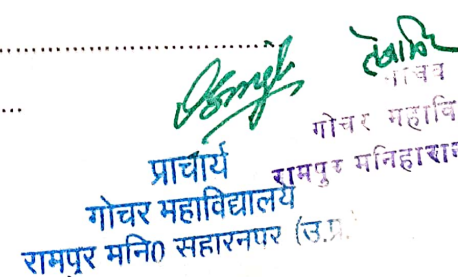 प्राचार्य
गोचर महाविद्यालय
रामपुर मनि0 सहारनपुर (उ.प्र.
गोचर महावि
रामपुर मनिहारान